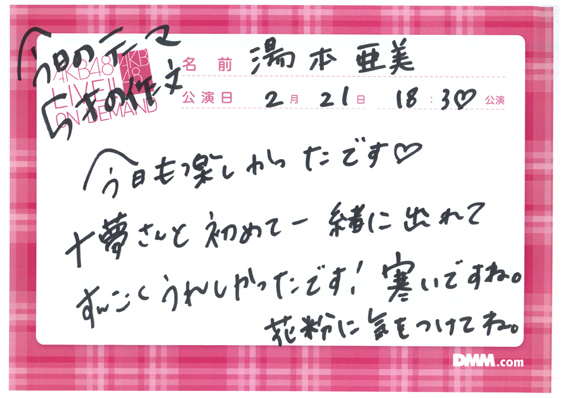 今日のテーマ
5才の作文
AKB48
LIVE!!
ON DEMAND
AKB
48
名前 湯本亜美
公演日 2月21日 18:30公演
今日も楽しかったです♡
十夢さんと初めて一緒に出れて
すんごくうれしかったです! 寒いですね。
花粉に気をつけてね。
DMM.com